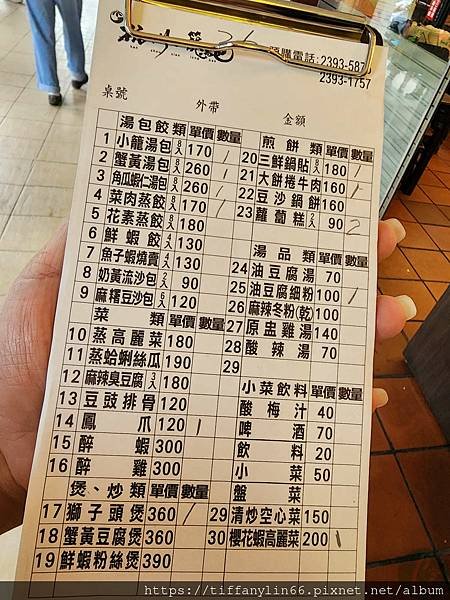 預購電話：2393-587
2393-1757
桌號 外帶 金額
湯包餃類 單價 數量
1 小籠湯包 8入 170 /
2 蟹黃湯包 8入 260 /
3 角瓜蝦仁湯包 8入 260 /
4 菜肉蒸餃 8入 170 /
5 花素蒸餃 8入 180
6 鮮蝦餃 130
7 魚子蝦燒賣 130
8 奶黃流沙包 2入 90
9 麻糬豆沙包 120
菜類 單價 數量
10 蒸高麗菜 180
11 蒸蛤蜊絲瓜 190
12 麻辣臭豆腐 180
13 豆豉排骨 120
14 鳳爪 120 1
15 醉蝦 300
16 醉雞 300
煲、炒類 單價 數量
17 獅子頭煲 360 /
18 蟹黃豆腐煲 360
19 鮮蝦粉絲煲 390
煎餅類 單價 數量
20 三鮮鍋貼 8入 180 /
21 大餅捲牛肉 160 /
22 豆沙鍋餅 160
23 蘿蔔糕 2入 90 2
湯品類 單價 數量
24 油豆腐湯 70
25 油豆腐細粉 100 /
26 麻辣冬粉(乾) 100
27 原盅雞湯 140
28 酸辣湯 70
29
小菜飲料 單價 數量
酸梅汁 40
啤酒 70
飲料 20
小菜 50
盤菜
29 清炒空心菜 150
30 櫻花蝦高麗菜 200 1
https://tiffanylin66.pixnet.net/album